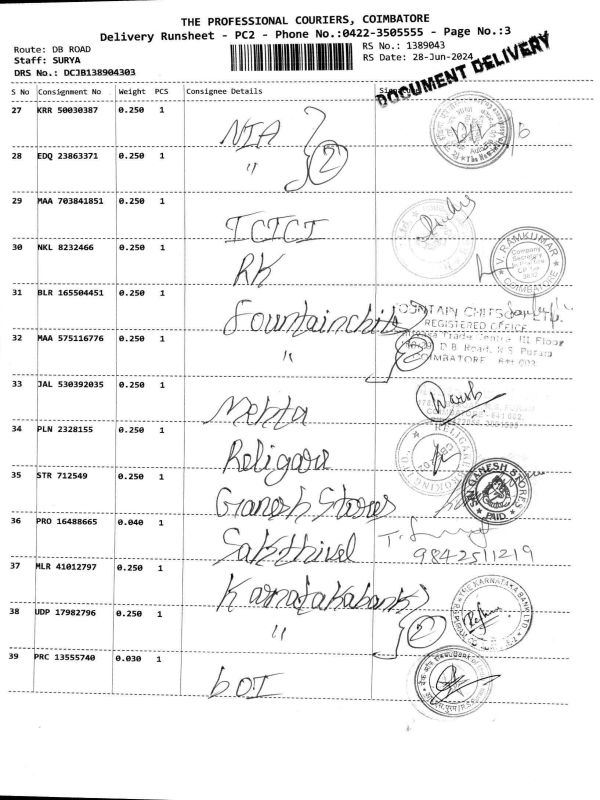 THE PROFESSIONAL COURIERS, COIMBATORE
Delivery Runsheet - PC2 - Phone No.:0422-3505555 - Page No.:3
Route: DB ROAD
Staff: SURYA
DRS No.: DCJB138904303
RS No.: 1389043
RS Date: 28-Jun-2024
DOCUMENT DELIVERY
S No Consignment No Weight PCS Consignee Details
27 KRR 50030387 0.250 1 NIA
28 EDQ 23863371 0.250 1 " 2
29 MAA 703841851 0.250 1 ICICI
30 NKL 8232466 0.250 1 RK
V. RAMKUMAR
Company
Secretary
COIMBATORE
31 BLR 165504451 0.250 1 Fountainchits
FOUNTAIN CHITS
REGISTERED OFFICE
32 MAA 575116776 0.250 1 " 2
Trade Centre III Floor
D.B. Road, R.S. Puram
COIMBATORE - 641 002
33 JAL 530392035 0.250 1 Mehta
34 PLN 2328155 0.250 1 Religare
35 STR 712549 0.250 1 Ganesh Stores
SRI GANESH STORES
PAID
36 PRO 16488665 0.040 1 Sakthivel
9842511219
37 MLR 41012797 0.250 1 Karnatakabank
THE KARNATAKA BANK LTD
38 UDP 17982796 0.250 1 " 2
39 PRC 13555740 0.030 1 BOI